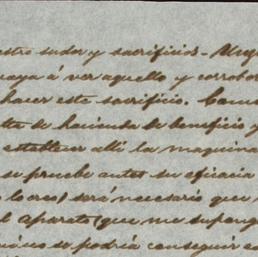 estro sudor y sacrificios - Urge
vaya á ver aquello y corrobor
hacer este sacrificio. Como
sta de hacienda de beneficio y
establecer allí la maquina
se pruebe antes su eficacia
lo creo) será necesario que
l aparato (que me supong
se podría conseguir es